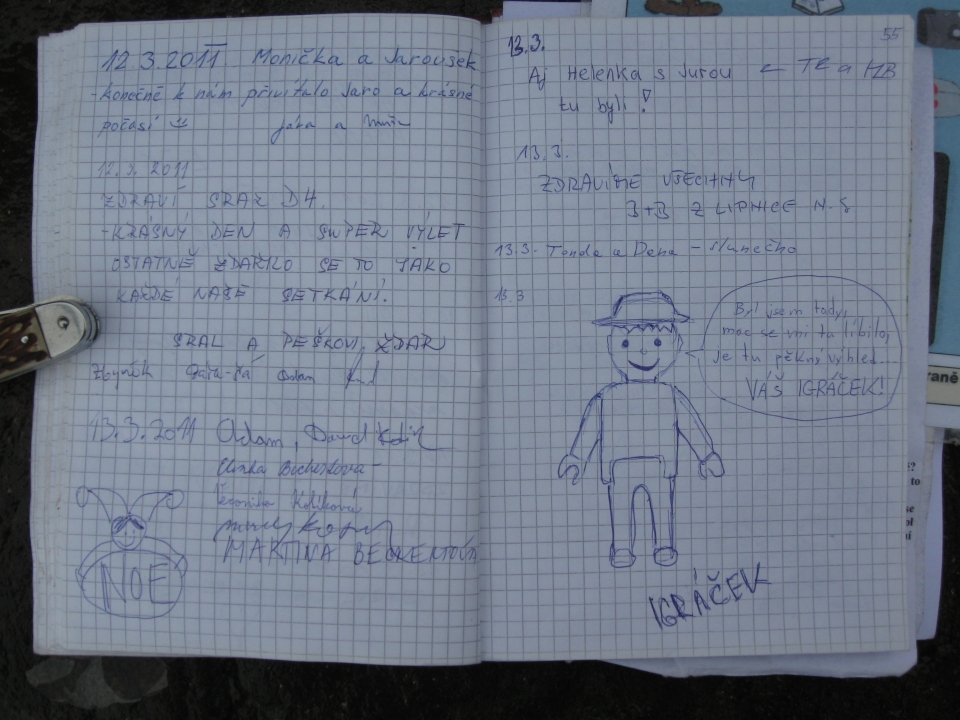 12.3.2011 Monička a Jaroušek
- konečně k nám přivítalo Jaro a krásné
počasí
12.3.2011
ZDRAVÍ SRAZ D4.
- KRÁSNÝ DEN A SUPER VÝLET
OSTATNĚ ZDAŘILO SE TO JAKO
KAŽDÉ NAŠE SETKÁNÍ.
A PEŠKOVI. ZDAR
Zbyněk
13.3.2011 Adam, David
MARTINA
NOE
55
13.3.
Aj Helenka s Jurou ← TR a HB
tu byli!
13.3.
ZDRAVÍME VŠECHNY
B+B Z LIPNICE N. S
13.3. Tonda a Dana - slunečno
13.3
Byl jsem tady,
moc se mi tu líbilo,
je tu pěkný výhled...
VÁŠ IGRÁČEK!
IGRÁČEK
raně